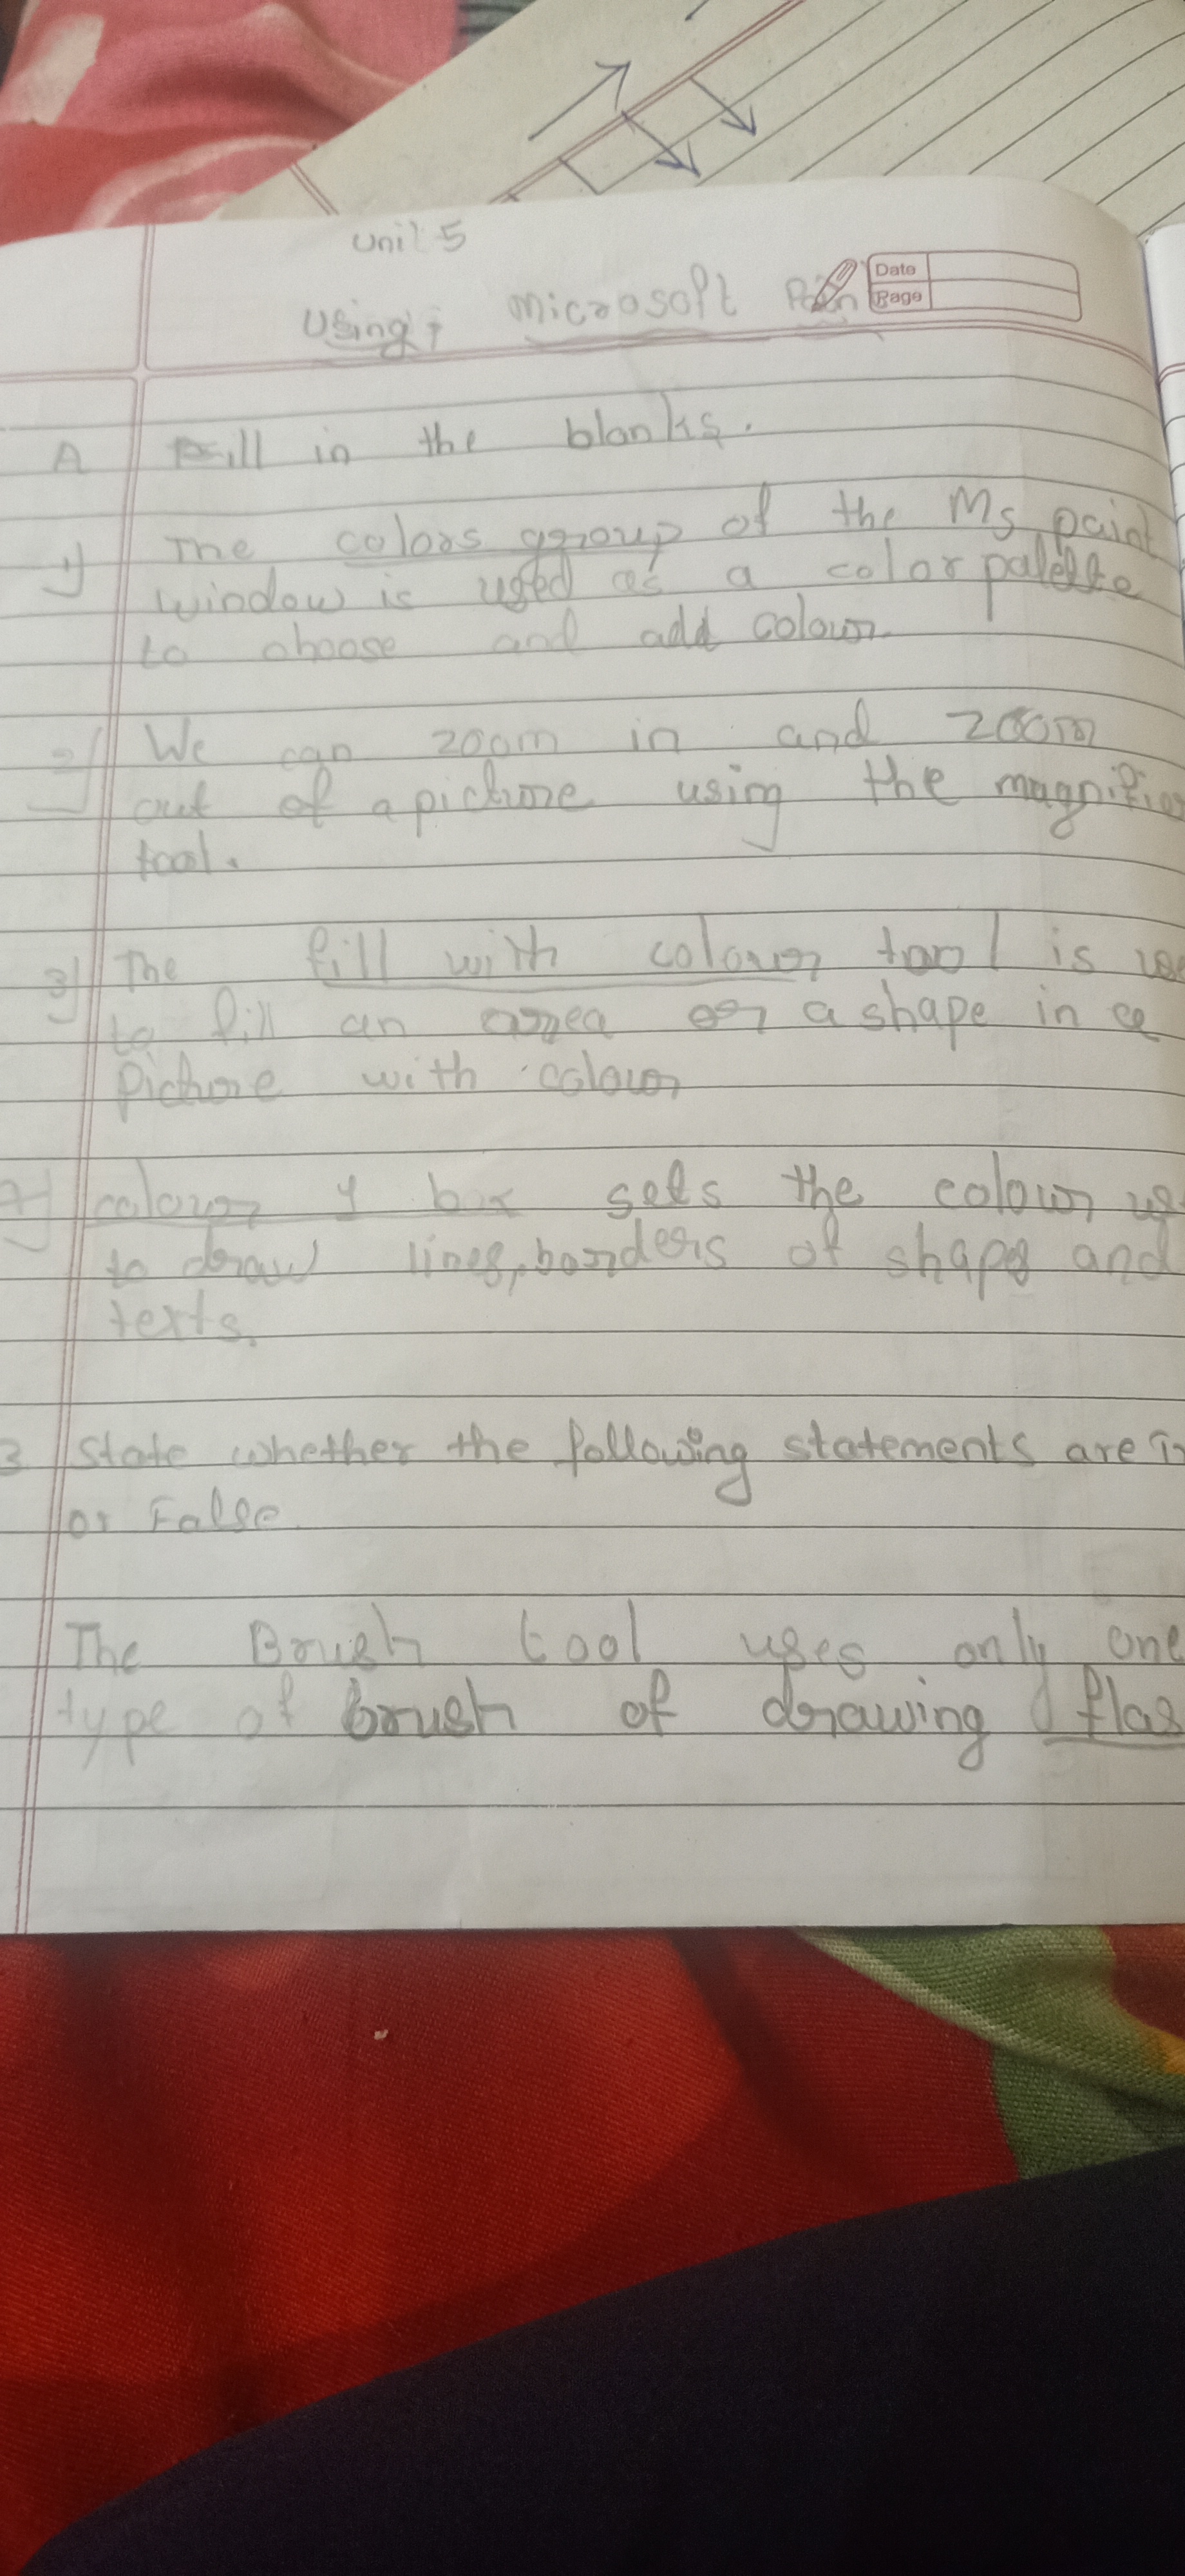 Unit 5
Date
Using Microsoft Pain
Page
A Fill in the blanks.
1) The colors group of the Ms paint
window is used as a color palette
to choose and add colour
2) We can zoom in and zoom
out of a picture using the magnifier
tool.
3) The fill with colour tool is
to fill an area or a shape in a
Picture with colour
4) colour 1 box sets the colour us
to draw lines, borders of shapes and
texts.
State whether the following statements are
or False
The Brush tool uses only one
type of brush of drawing flas